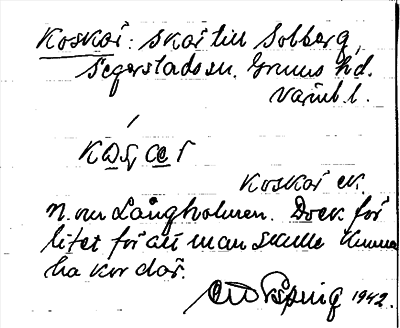 Koskär: skär till Solberg,
Segerstads sn. Grums hd.
Värml. l.
Koskär ek.
N. om Långholmen. Dock för
litet för att man skulle kunna
ha kor där.
1942.